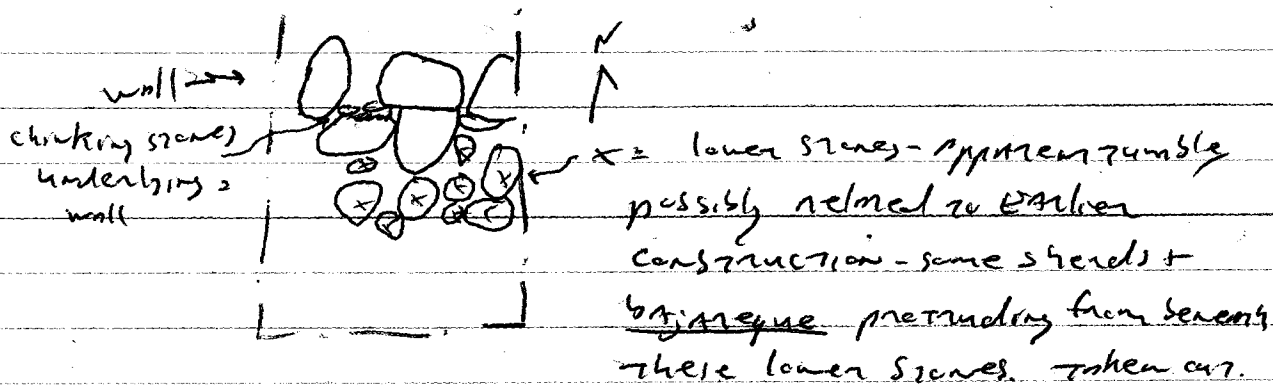 N
wall →
chinking stones
underlying
wall
x = lower stones - apparent tumble
possibly related to Earlier
construction - some sherds +
bajareque protruding from beneath
these lower stones. Taken out.